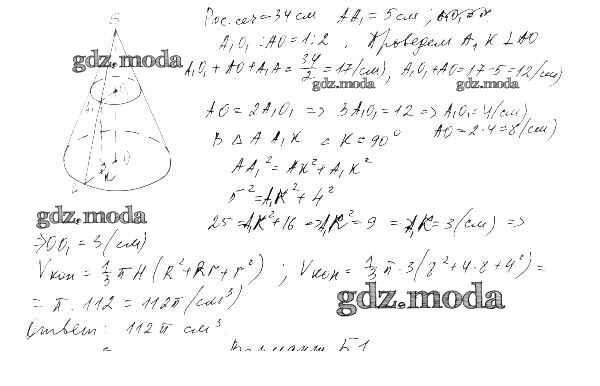 Pос.сеч = 34 см AA₁ = 5 см;
A₁O₁ : AO = 1:2, Проведем A₁K ⊥ AO
gdz.moda
A₁O₁ + AO + A₁A = 34/2 = 17 (см), A₁O₁ + AO = 17 - 5 = 12 (см)
gdz.moda gdz.moda
AO = 2A₁O₁ => 3A₁O₁ = 12 => A₁O₁ = 4 (см)
AO = 2·4 = 8 (см)
В Δ AA₁K ∠K = 90°
AA₁² = AK² + A₁K²
5² = A₁K² + 4²
gdz.moda
25 = A₁K² + 16 => A₁K² = 9 => A₁K = 3 (см) =>
=> OO₁ = 3 (см)
Vкон = 1/3 πH (R² + Rr + r²); Vкон = 1/3 π·3 (8² + 4·8 + 4²) =
= π·112 = 112π (см³)
gdz.moda
Ответ: 112π см³
Вариант Б1